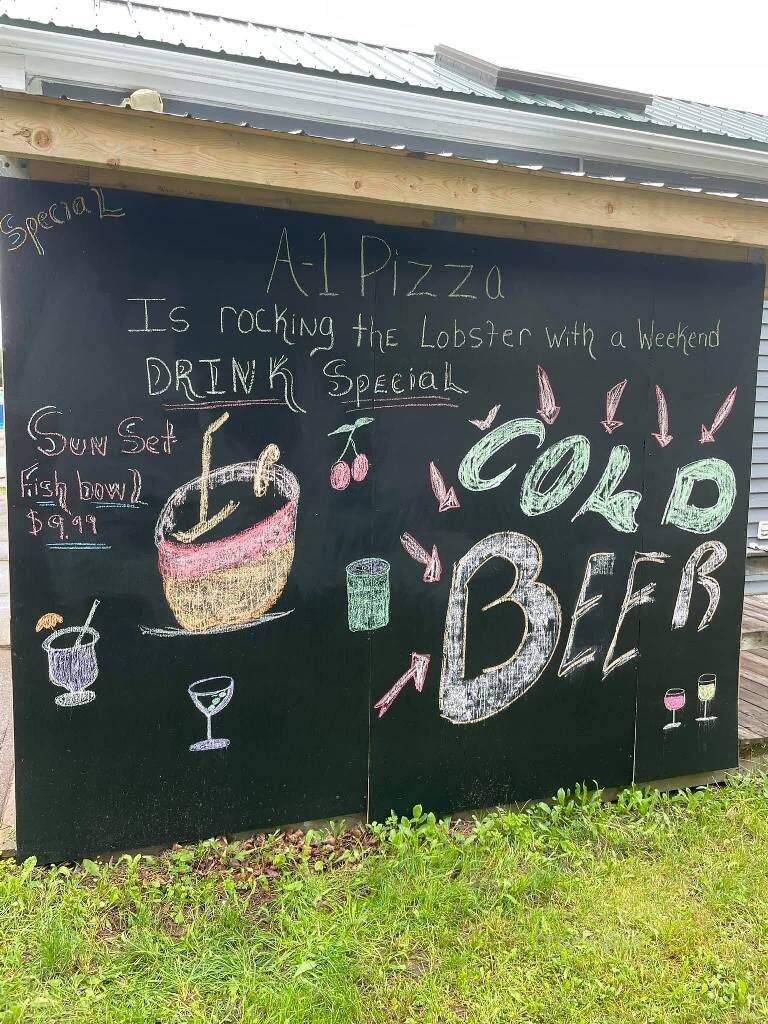 Special
A-1 Pizza
Is rocking the Lobster with a Weekend
DRINK Special
Sun Set
Fish bowl
$9.99
COLD
BEER